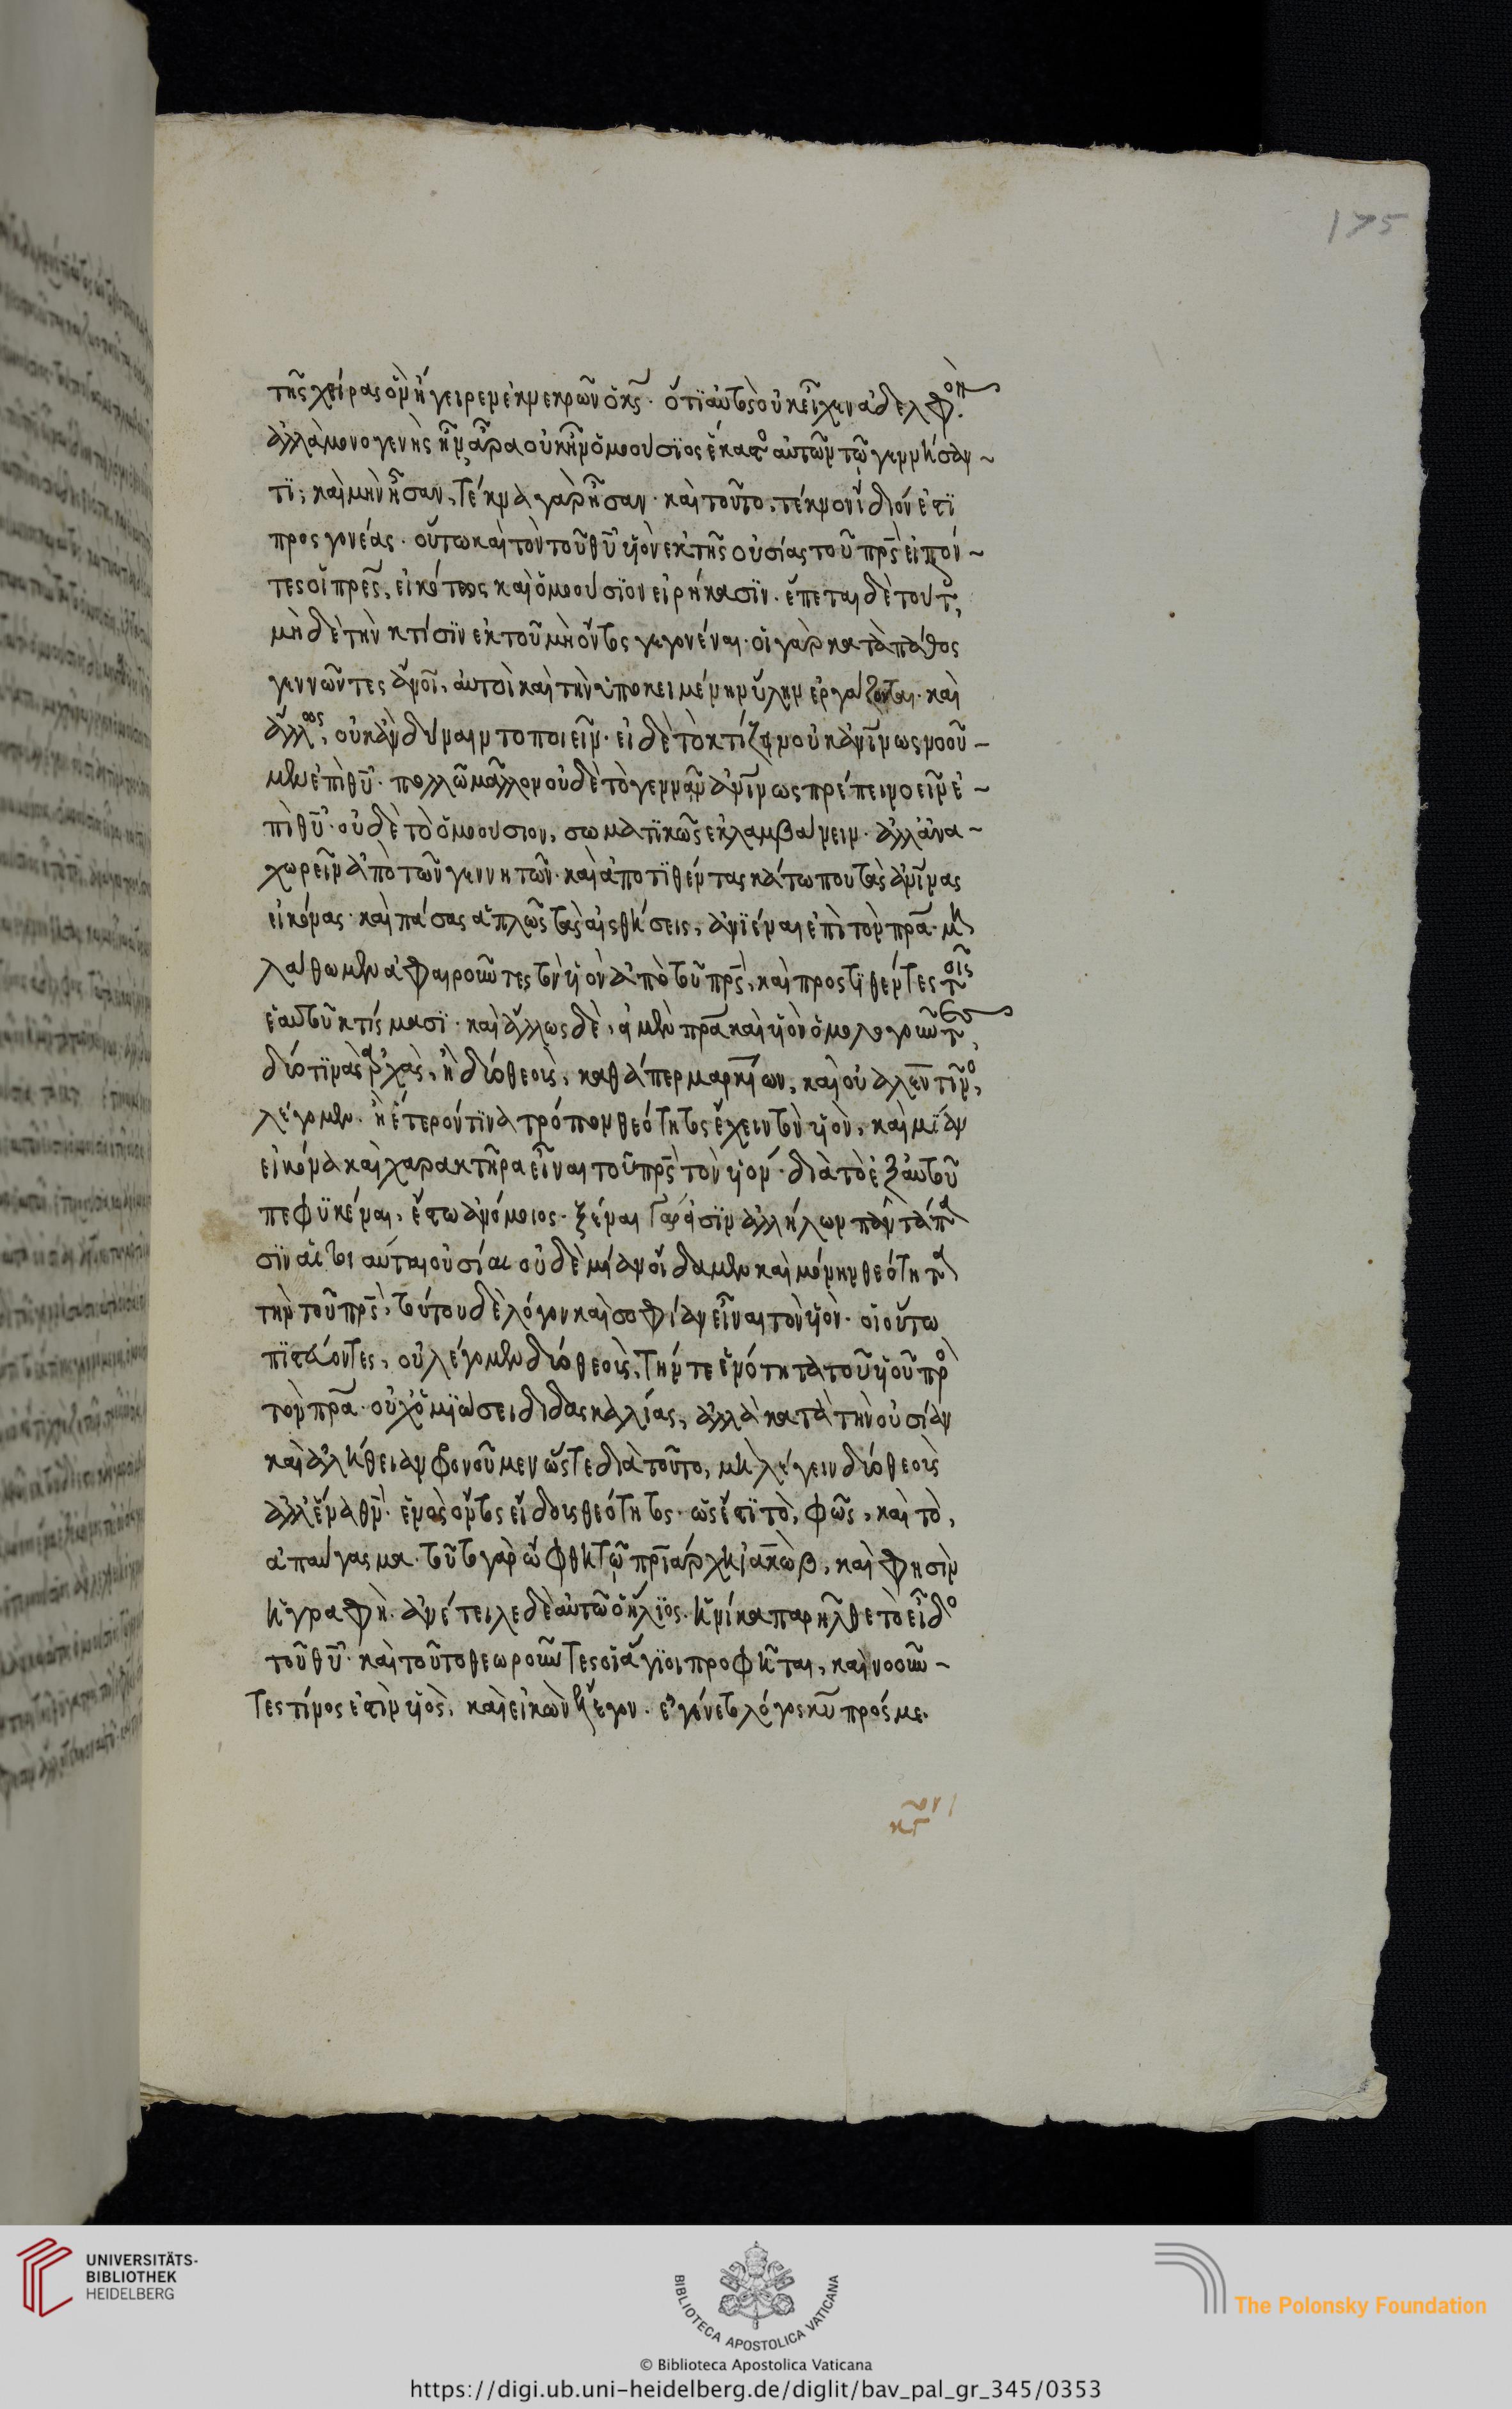 175
τῆς χείρας ὃν ἤγειρεν ἐκ νεκρῶν ὁ κς̅. ὅτι αὐτὸς οὐκ εἶχεν ἀδελφὸν
ἀλλὰ μονογενὴς ἦν, ἆρα οὐκ ἦν ὁμοούσιος ἕκαστο αὐτῶν τῷ γεννήσαν ~
τι; καὶ μὴν ἦσαν, τέκνα γὰρ ἦσαν. καὶ τοῦτο, τέκνον ἴδιόν ἐστι
προς γονέας. οὕτω καὶ τὸν τοῦ θυ̅ υἱὸν ἐκ τῆς οὐσίας τοῦ πρς̅ εἰπόν ~
τες οἱ πρες̅, εἰκότως καὶ ὁμοούσιον εἰρήκασιν. ἕπεται δὲ τούτ,
μὴ δὲ τὴν κτίσιν ἐκ τοῦ μὴ ὄντος γεγονέναι. οἱ γὰρ κατὰ πάθος
γεννῶντες ἄνοι̅, αὐτοὶ καὶ τὴν ὑποκειμένην ὕλην ἐργάζονται. καὶ
ἄλλως, οὐκ ἂν δύναιντο ποιεῖν. εἰ δὲ τὸ κτίζειν οὐκ ἀνΐνως νοοῦ –
μεν ἐπὶ θυ̅. πολλῶ μᾶλλον οὐδὲ τὸ γεννᾶν ἀνΐνως πρέπει νοεῖν ἐ ~
πὶ θυ̅. οὐδὲ τὸ ὁμοούσιον, σωματικῶς ἐκλαμβάνειν. ἀλλ' ἀνα ~
χωρεῖν ἀπὸ τῶν γεννητῶν. καὶ ἀποτιθέντας κάτω που τὰς ἀνΐνας
εἰκόνας. καὶ πάσας ἁπλῶς τὰς αἰσθήσεις, ἀνϊέναι ἐπὶ τὸν πρα̅. μὴ
λάθωμεν ἀφαιροῦντες τὸν υἱὸν ἀπὸ τοῦ πρς̅, καὶ προστιθέντες τοῖς
ἑαυτοῦ κτίσμασι. καὶ ἄλλως δὲ, εἰ μὲν πρα̅ καὶ υἱὸν ὁμολογοῦντες,
δύο τινὰς ἀρχὰς, ἢ δύο θεοὺς, καθάπερ μαρκίων, καὶ οὐαλεντῖνο,
λέγομεν. ἢ ἕτερόν τινα τρόπον θεότητος ἔχειν τὸν υἱὸν, καὶ μΐαν
εἰκόνα καὶ χαρακτῆρα εἶναι τοῦ πρς̅ τὸν υἱόν. διὰ τὸ ἐξ αὐτοῦ
πεφυκέναι, ἔστω ἀνόμοιος. ξέναι γάρ εἰσιν ἀλλήλων παντάπα
σιν αἱ τοιαῦται οὐσίαι οὐδὲ μίαν οἴδαμεν καὶ μόνην θεότητα
τὴν τοῦ πρς̅, τούτου δὲ λόγον καὶ σοφίαν εἶναι τὸν υἱὸν. οἱ οὕτω
πιστεύοντες, οὐ λέγομεν δύο θεοὺς, τήν τε ἑνότητα τοῦ υἱοῦ πρὸ
τὸν πρα̅. οὐχ ὁμοιώσει διδασκαλίας, ἀλλὰ κατὰ τὴν οὐσίαν
καὶ ἀλήθειαν φρονοῦμεν ὥστε διὰ τοῦτο, μὴ λέγειν δύο θεοὺς
ἀλλ' ἕνα θν̅. ἑνὸς ὄντος εἴδους θεότητος. ὡς ἔστι τὸ, φῶς, καὶ τὸ,
ἀπαύγασμα. τοῦτο γὰρ ὤφθη τῷ πρϊάρχη ἰακὼβ, καὶ φησὶν
ἡ γραφὴ. ἀνέτειλε δὲ αὐτῶ ὁ ἥλιος. ἡνίκα παρῆλθε τὸ εἶδο
τοῦ θυ̅. καὶ τοῦτο θεωροῦντες οἱ ἅγιοι προφῆται, καὶ νοοῦν ~
τες τίνος ἐστὶν υἱὸς, καὶ εἰκὼν ἔλεγον. ἐγένετο λόγος κυ̅ πρός με.
UNIVERSITÄTS-
BIBLIOTHEK
HEIDELBERG
BIBLIOTECA APOSTOLICA VATICANA
The Polonsky Foundation
© Biblioteca Apostolica Vaticana
https://digi.ub.uni-heidelberg.de/diglit/bav_pal_gr_345/0353